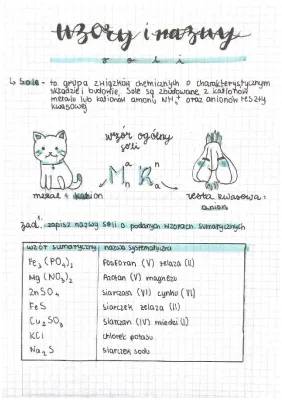 Wzory i nazwy
soli
↳ Sole - to grupa związków chemicznych o charakterystycznym
układzie i budowie. Sole są zbudowane z kationów
metalu lub kationów amonu NH₄⁺ oraz anionów reszty
kwasowej
wzór ogólny
soli
M R
m n
n m
metal = kation
reszta kwasowa =
anion
zad. zapisz nazwy soli o podanych wzorach sumarycznych
wzór sumaryczny | nazwa systematyczna
Fe₃(PO₄)₂ | fosforan (V) żelaza (II)
Mg(NO₃)₂ | azotan (V) magnezu
ZnSO₄ | siarczan (VI) cynku (VI)
FeS | siarczek żelaza (II)
Cu₂SO₃ | siarczan (IV) miedzi (I)
KCl | chlorek potasu
Na₂S | siarczek sodu